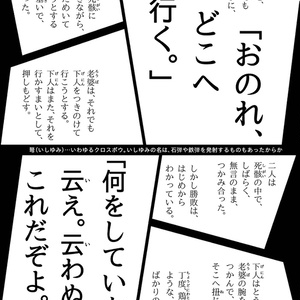 「おのれ、
どこへ
行く。」
死骸に
ながら、
塞いで、
老婆は、それでも
下人をつきのけて
行こうとする。
下人はまた、それを
行かすまいとして、
押しもどす。
弩(いしゆみ)…いわゆるクロスボウ。いしゆみの名は、石弾や鉄弾を発射するものもあったからか
二人は
死骸の中で、
しばらく、
無言のまま、
つかみ合った。
しかし勝敗は、
はじめから
わかっている。
下人はと
老婆の腕を
つかんで
そこへ扭
丁度、鶏
ような、
ばかりの
「何をしてい
云え。云わぬ
これだぞよ。